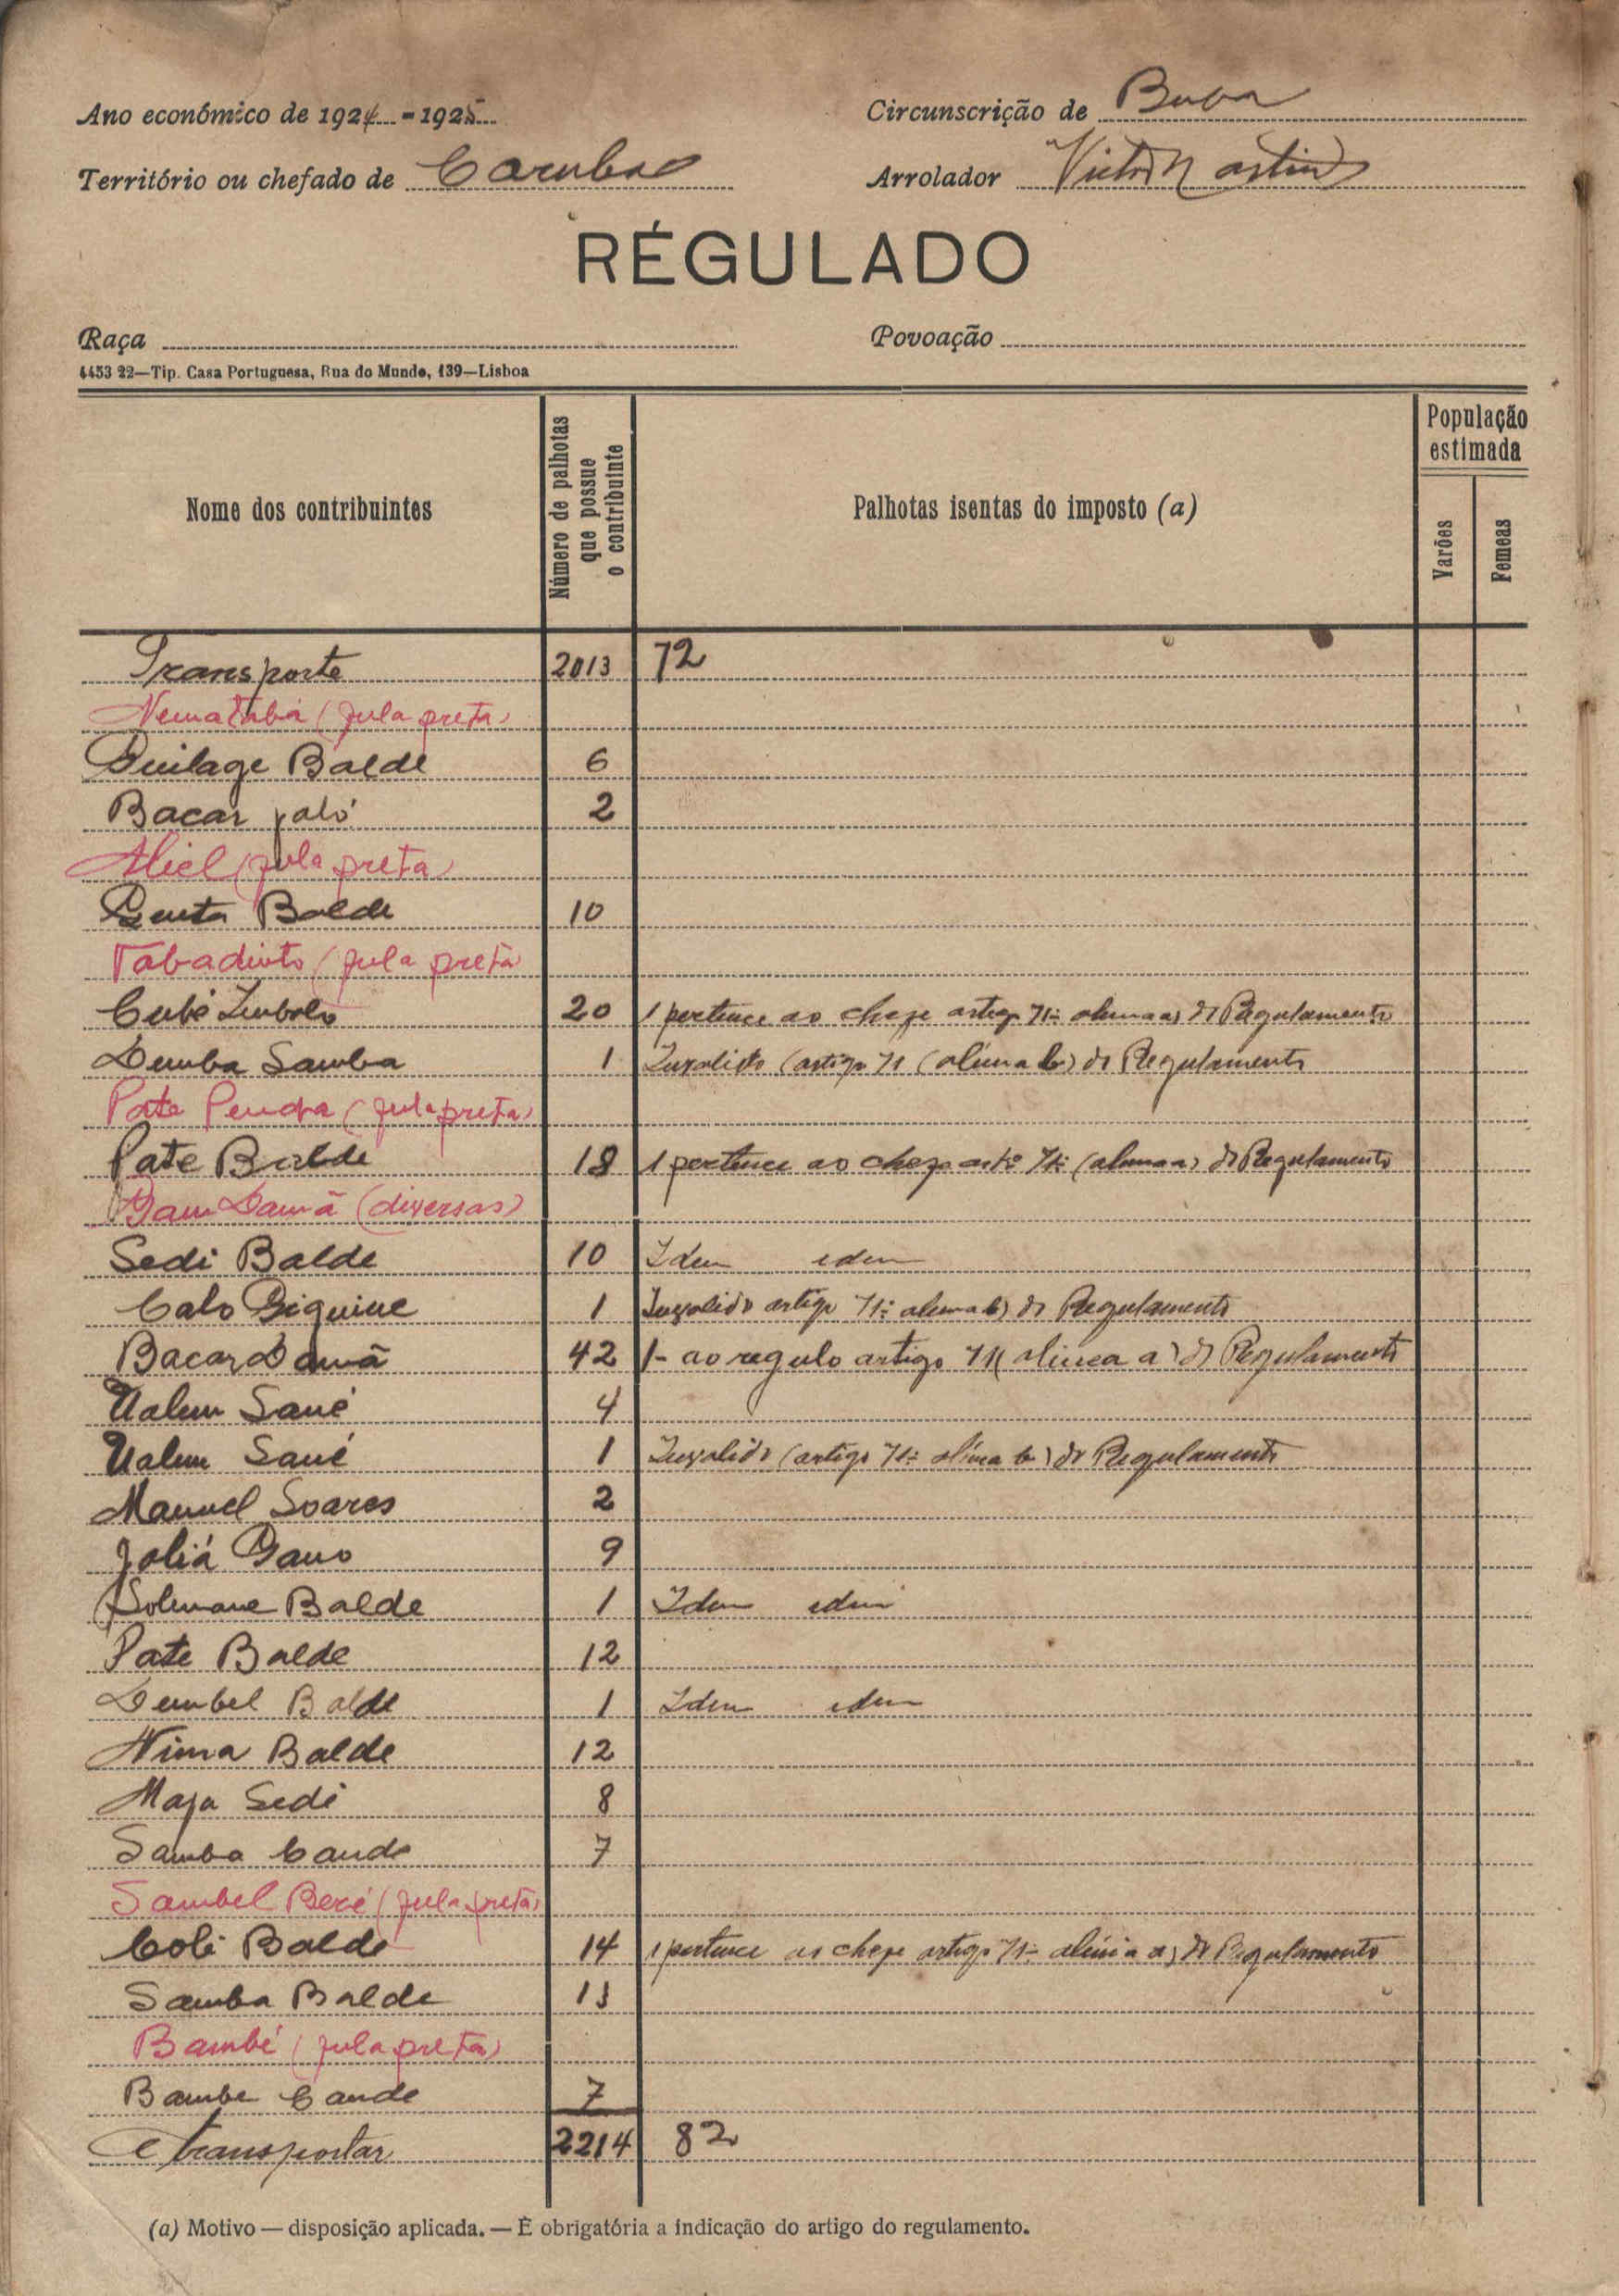 Ano económico de 1924 - 1925
Circunscrição de Buba
Território ou chefado de
Arrolador Victor Martins
RÉGULADO
Raça
Povoação
4453 22—Tip. Casa Portuguesa, Rua do Mundo, 139—Lisboa
Nome dos contribuintes
Número de palhotas que possue o contribuinte
Palhotas isentas do imposto (a)
População estimada
Varões
Femeas
Transporte 2013 72
Nematabá (fula preta)
Quilage Balde 6
Bacar jaló 2
(fula preta)
Balde 10
(fula preta)
20 1 pertence ao chefe artigo 71º alinea a) do Regulamento
Demba Samba 1 Invalido (artigo 71 (alinea b) do Regulamento
Pate Penda (fula preta)
Pate Balde 18 1 pertence ao chefe artº 71º (alinea a) do Regulamento
(diversas)
Sedi Balde 10 Idem idem
1 Invalido artigo 71º alinea b) do Regulamento
Bacar Damã 42 1- ao regulo artigo 71 (alinea a) do Regulamento
Ualem Sané 4
Ualem Sané 1 Invalido (artigo 71º alínea b) do Regulamento
Manuel Soares 2
Joliá Gano 9
Solimane Balde 1 Idem idem
Pate Balde 12
Dembel Balde 1 Idem idem
Nima Balde 12
Maja Sedi 8
Samba Cande 7
Sambel (fula preta)
Coli Balde 14 1 pertence ao chefe artigo 71º alínia a) do Regulamento
Samba Balde 13
Bambé (fula preta)
Bambe Cande 7
A transportar 2214 82
(a) Motivo — disposição aplicada. — É obrigatória a indicação do artigo do regulamento.